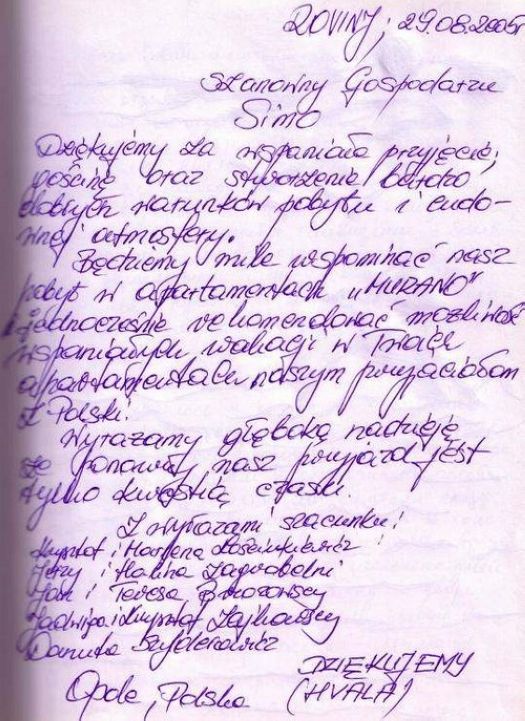 ROVINJ, 29.08.2005r
Szanowny Gospodarzu
Simo
Dziękujemy za wspaniałe przyjęcie,
gościnę oraz stworzenie bardzo
dobrych warunków pobytu i cudo-
wnej atmosfery.
Będziemy mile wspominać nasz
pobyt w apartamentach „MURANO"
i jednocześnie rekomendować możliwość
wspaniałych wakacji w Twoich
apartamentach naszym przyjaciołom
z Polski.
Wyrażamy głęboką nadzieję
że ponowny nasz przyjazd jest
tylko kwestią czasu.
Z wyrazami szacunku!
Krzysztof i Marlena
Jerzy i Halina Zagrobelni
Jan i Teresa Brzozowscy
Jadwiga i Krzysztof Zajkowscy
Danuta
DZIĘKUJEMY
Opole, Polska (HVALA)